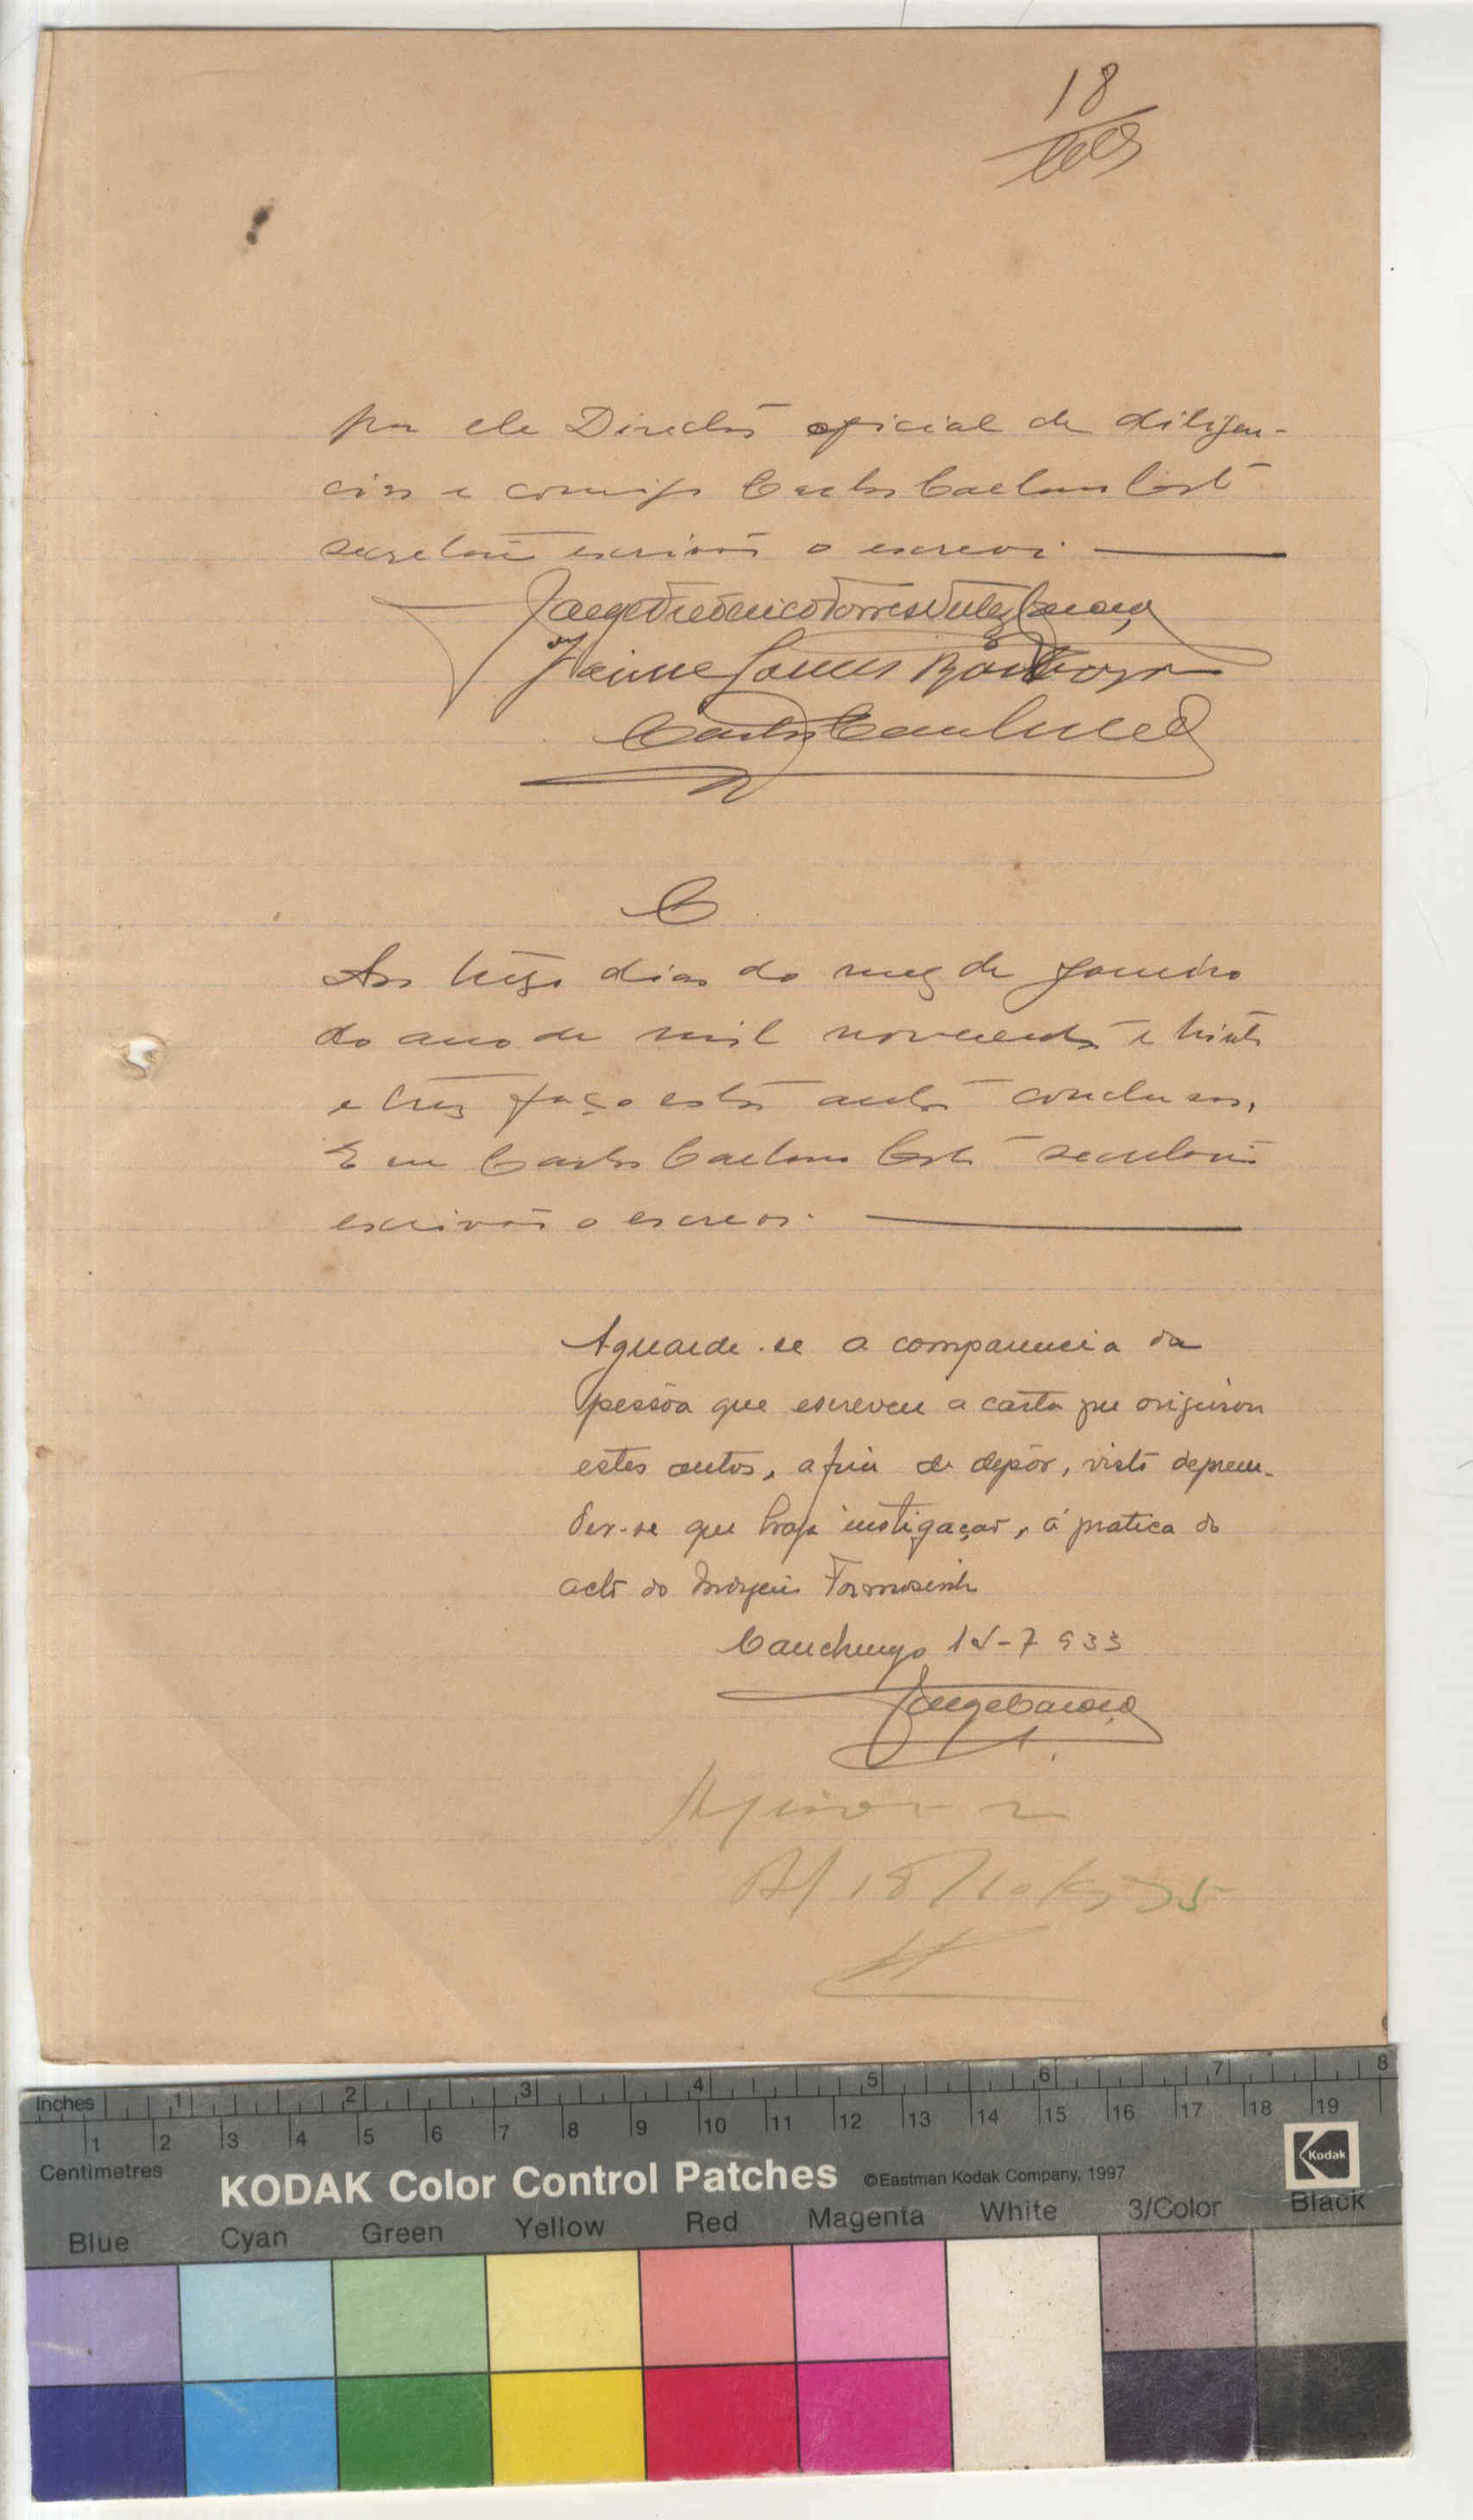 18
por ele Director oficial de diligen-
cias e comigo Carlos Caetano Costa
secretario escrivão o escrevi.
Jaime Gomes Barboza
C
Aos treze dias do mez de Janeiro
do ano de mil novecentos e trinta
e trez faço estes autos conclusos,
E eu Carlos Caetano Costa secretario
escrivão o escrevi.
Aguarde-se a comparencia da
pessôa que escreveu a carta que originou
estes autos, a fim de depôr, visto depreen-
der-se que haja instigação, á pratica do
acto do Formosinho
Canchungo 933
Jorge
18 35
Inches 1 2 3 4 5 6 7 8
1 2 3 4 5 6 7 8 9 10 11 12 13 14 15 16 17 18 19
Centimetres
KODAK Color Control Patches ©Eastman Kodak Company, 1997 Kodak
Blue Cyan Green Yellow Red Magenta White 3/Color Black